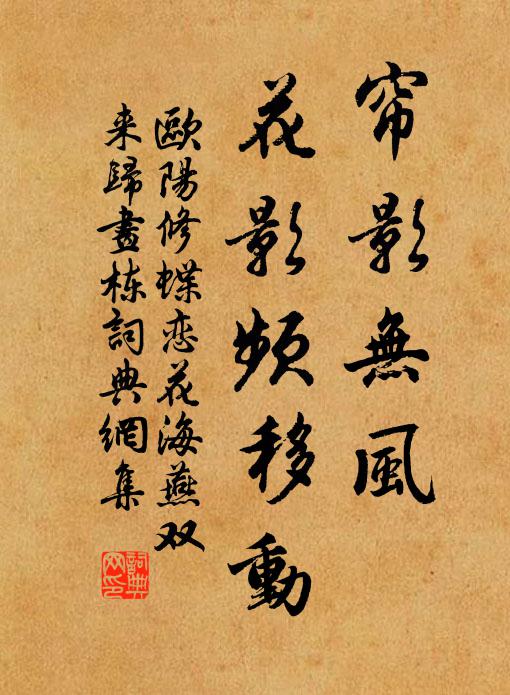 帘影無風
花影頻移動
歐陽修蝶恋花海燕双
来歸畫栋詞典網集
詞典
网印